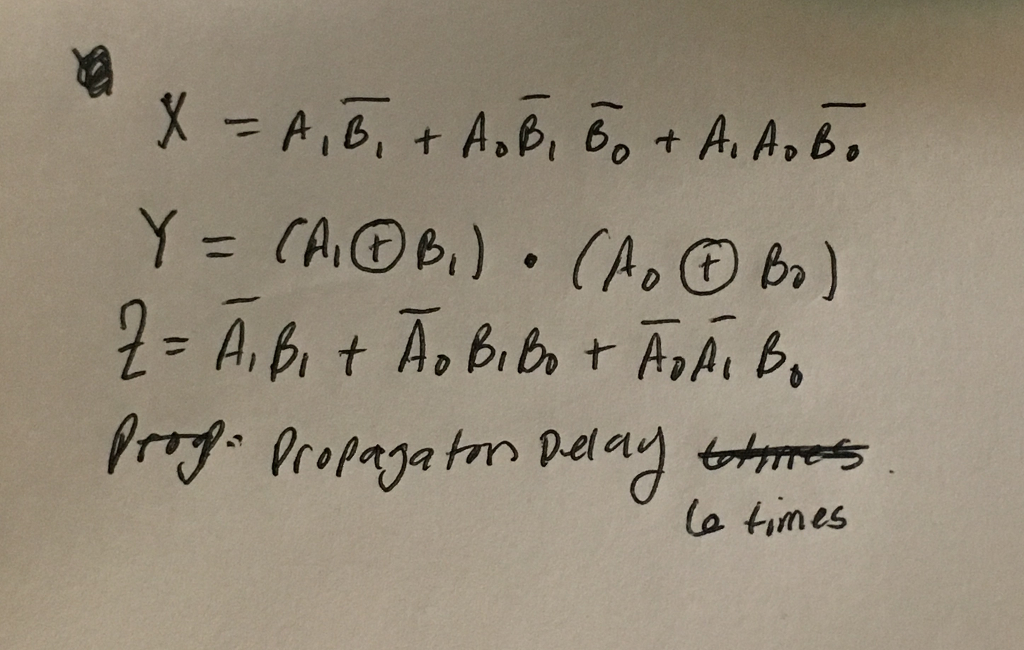 X = A₁B̅₁ + A₀B̅₁ B̅₀ + A₁ A₀ B̅₀
Y = (A₁ ⊕ B₁) • (A₀ ⊕ B₀)
Z = A̅₁ B₁ + A̅₀ B₁ B₀ + A̅₀ A̅₁ B₀
Propagaton Delay
6 times